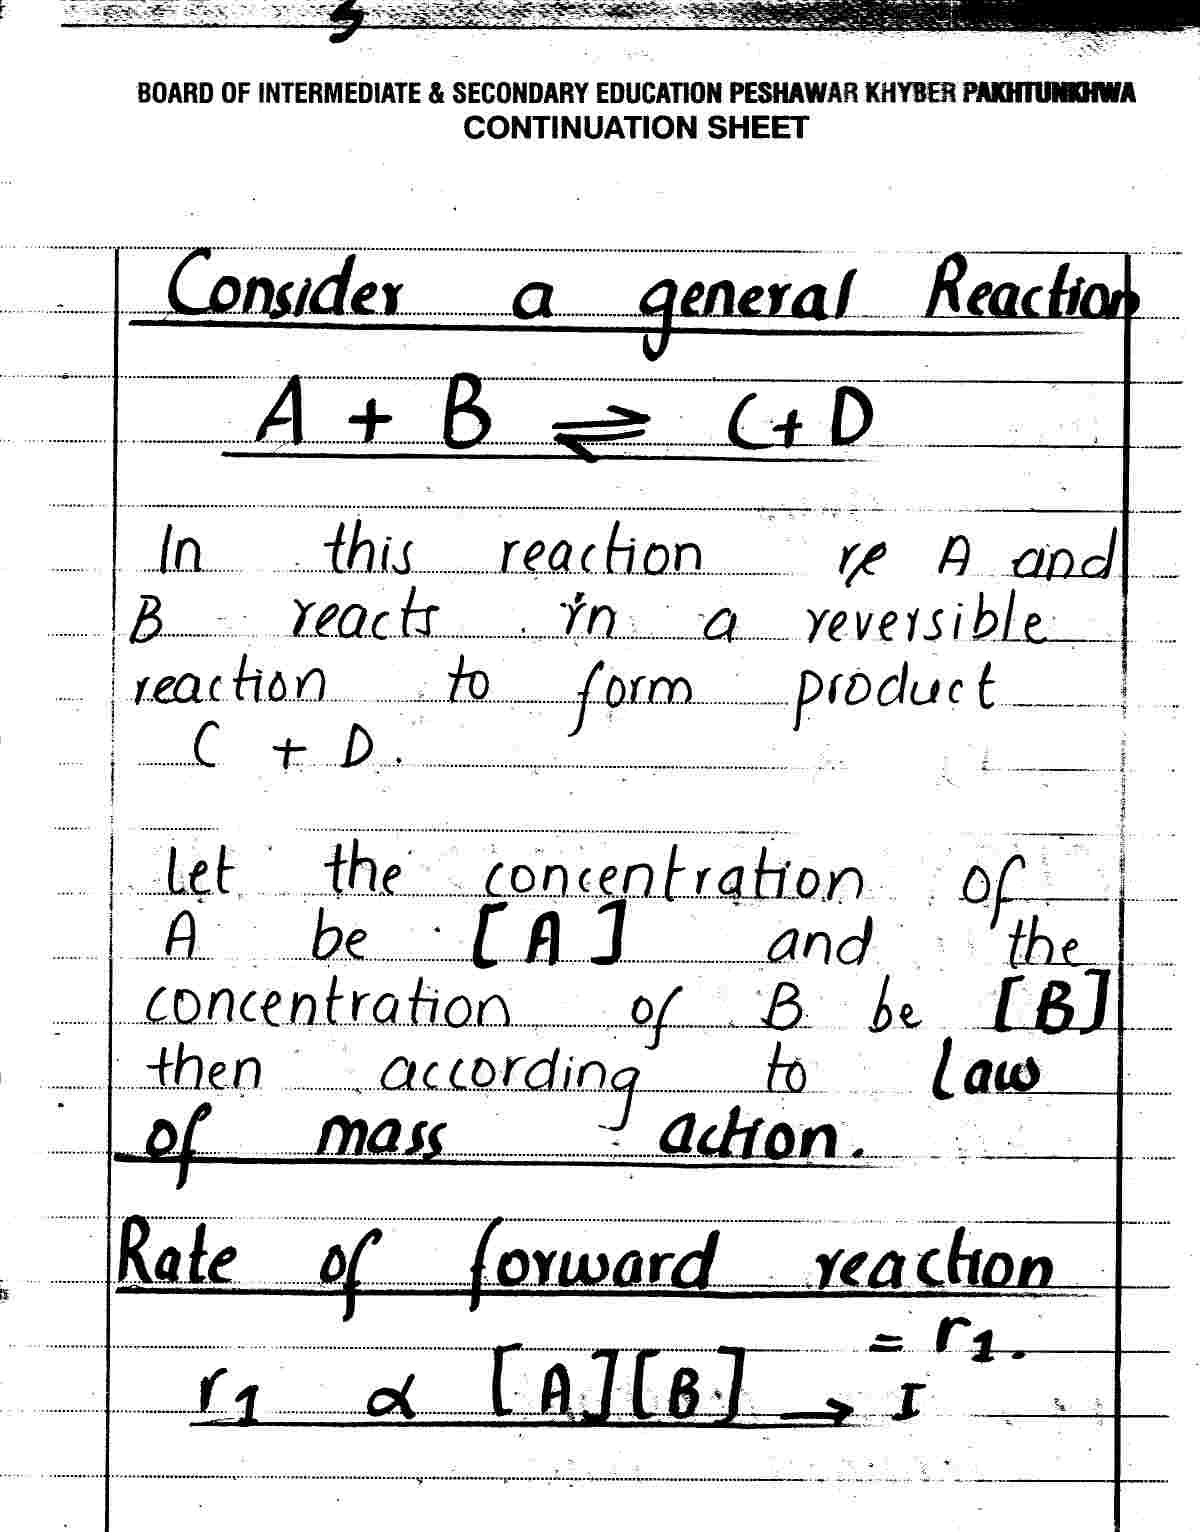 BOARD OF INTERMEDIATE & SECONDARY EDUCATION PESHAWAR KHYBER PAKHTUNKHWA
CONTINUATION SHEET
Consider a general Reaction
A + B ⇌ C+D
In this reaction re A and
B reacts in a reversible
reaction to form product
C + D.
Let the concentration of
A be [A] and the
concentration of B be [B]
then according to Law
of mass action.
Rate of forward reaction
= r1.
r1 ∝ [A][B] → I